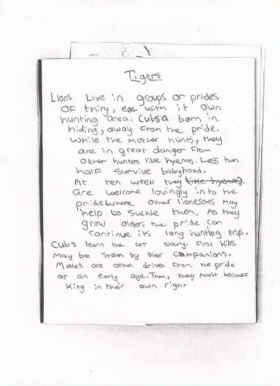 Tigers
Lions Live in groups or prides
OF thirty, with it own
hunting area. Cubs a born in
hiding, away from the pride.
While the mother hunts, they
are in great danger from
other hunters like hyenas. Less than
half survive babyhood.
At ten weeks they
are welcome lovingly in to the
pride where other lionesses may
help to suckle them. As they
grow olders the pride can
continue its long hunting trip.
Cubs learn the art story. First kills
May be from by their companions.
Males are often driven from the pride
at an early age. Then, they must become
King in their own right